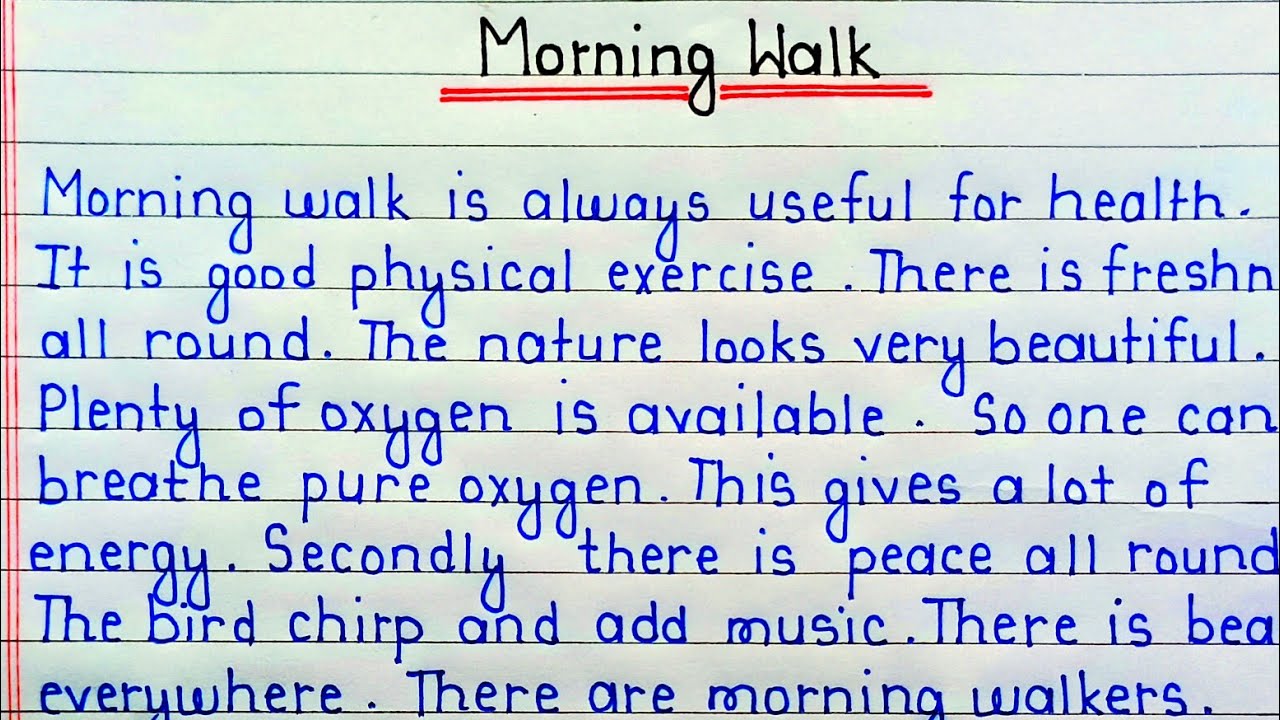 Morning Walk
Morning walk is always useful for health.
It is good physical exercise. There is freshn
all round. The nature looks very beautiful.
Plenty of oxygen is available. So one can
breathe pure oxygen. This gives a lot of
energy. Secondly there is peace all round
The bird chirp and add music. There is bea
everywhere. There are morning walkers.